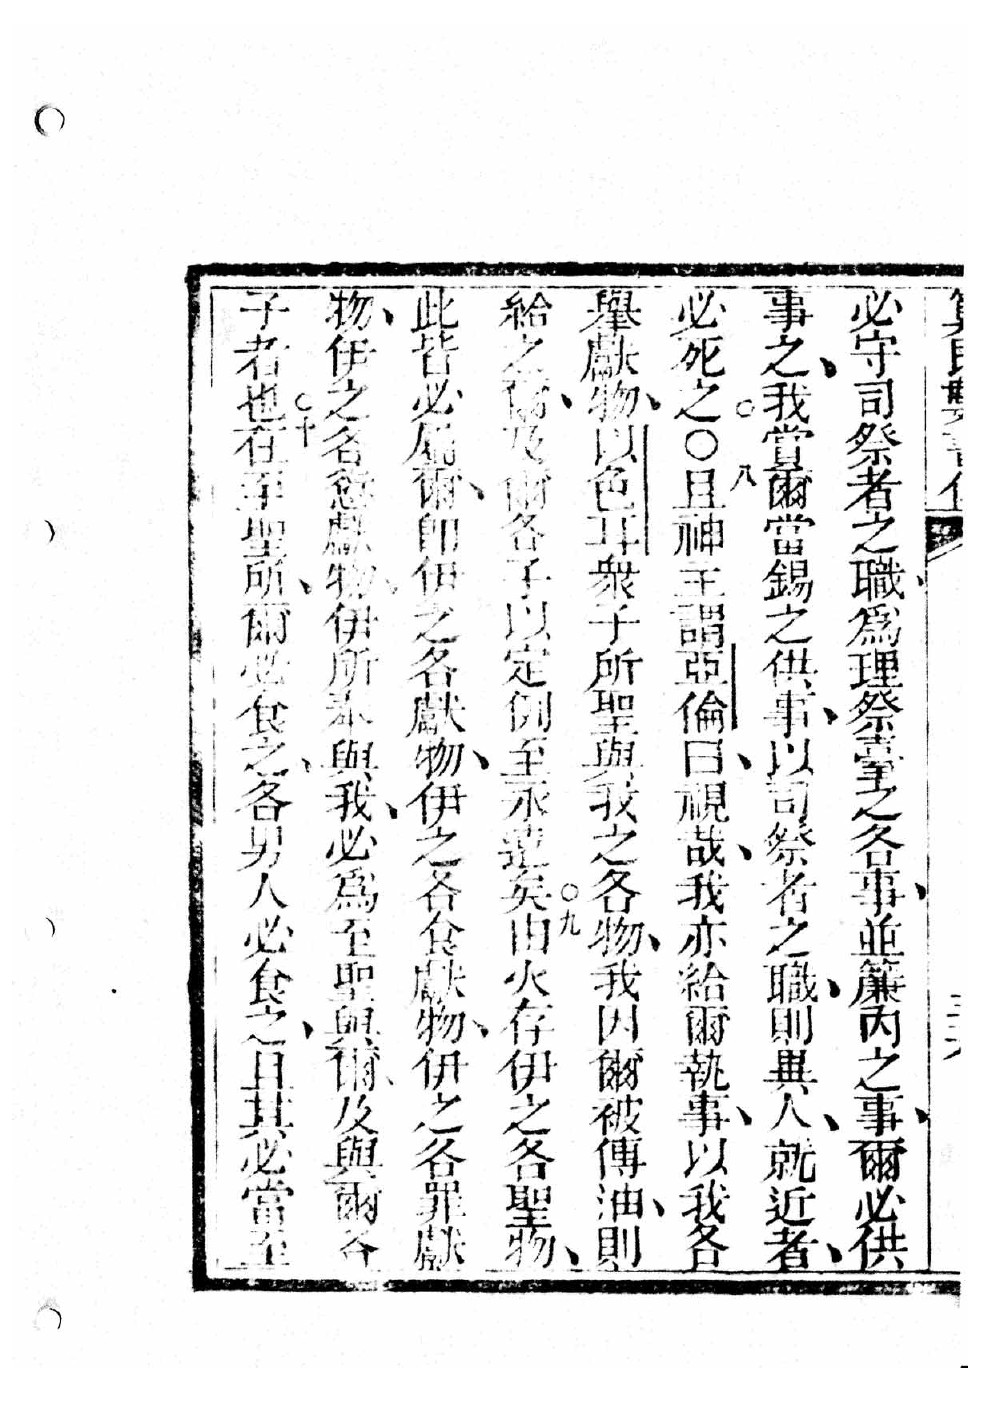 必守司祭者之職、爲理祭臺之各事、並簾內之事、爾必供
事之、我賞爾當錫之供事、以司祭者之職、則異人、就近者、
必死之〇〇八且神主謂亞倫曰、視哉、我亦給爾執事、以我各
舉獻物、以色耳衆子所聖與我之各物、我因爾被傅油、則
給之爾、及爾各子以定例至永遠矣〇九由火存伊之各聖物、
此皆必屬爾、卽伊之各獻物、伊之各食獻物、伊之各罪獻
物、伊之各愆獻物、伊所奉與我、必爲至聖與爾、及與爾各
子者也〇十在至聖所、爾必食之、各男人必食之、且其必當至